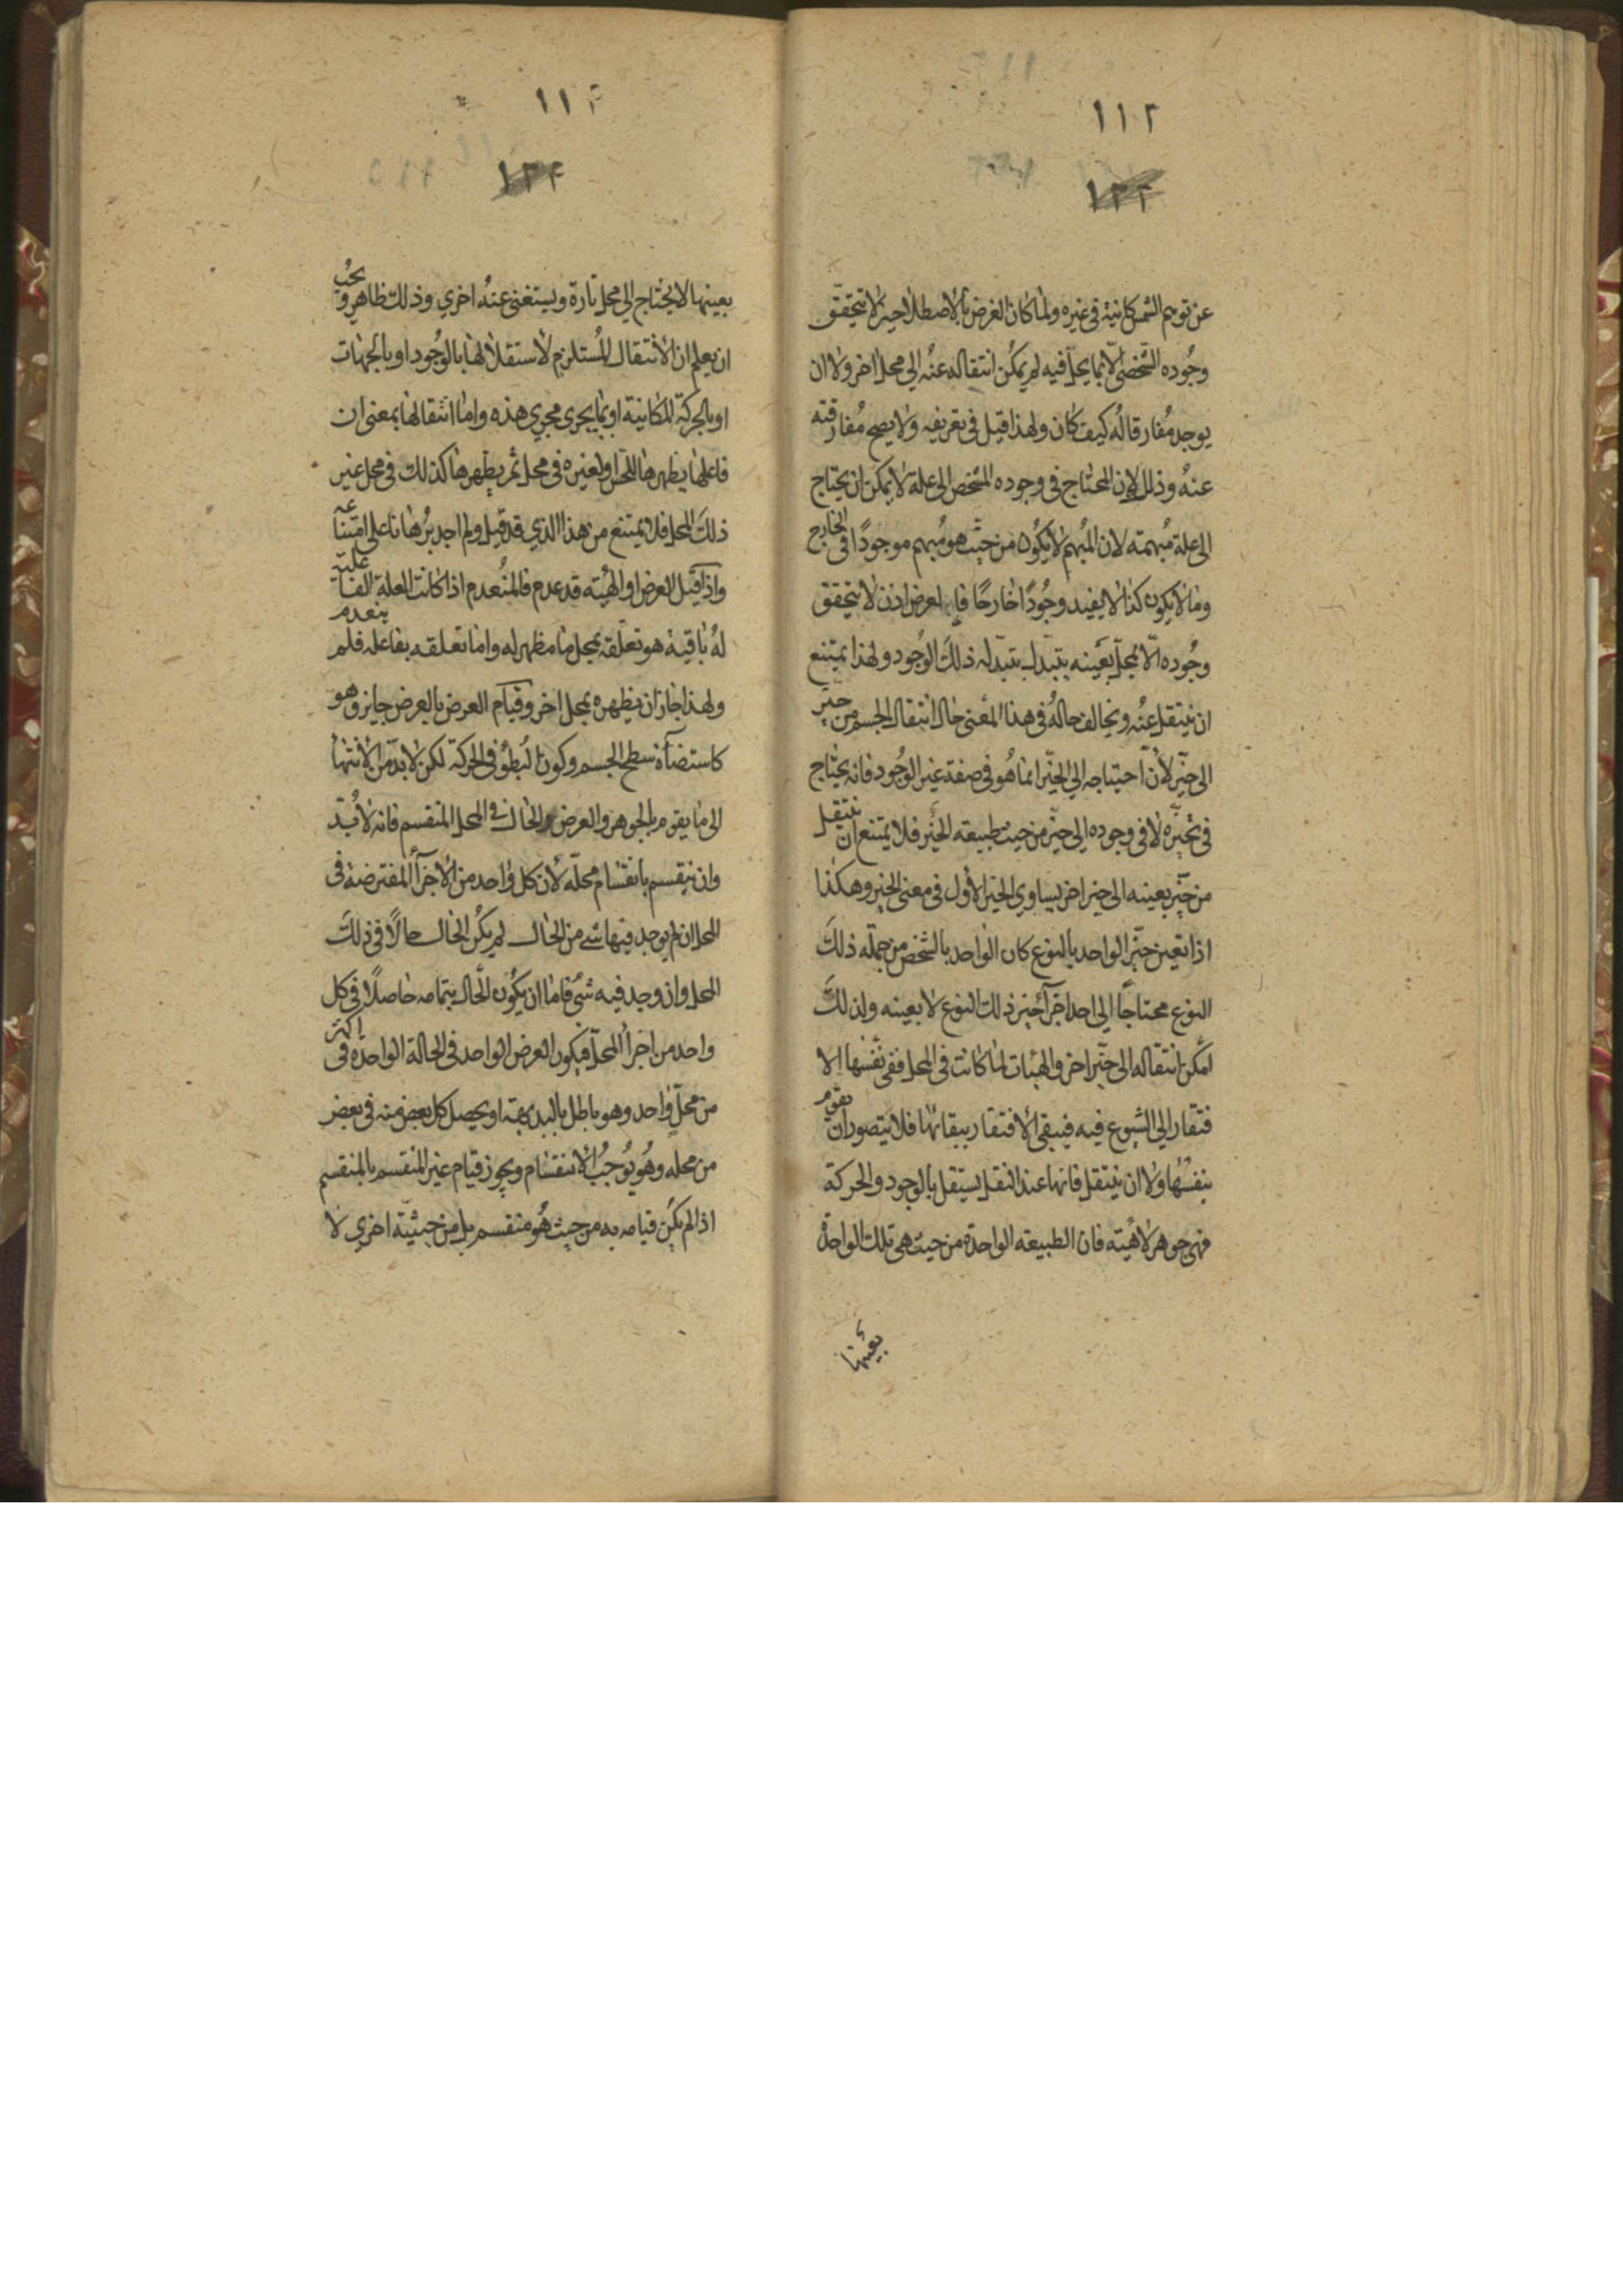 ١١٢
١٢٣
عن توهم الشمس كانية فى غيره ولما كان العرض بالاصطلاحين لا يتحقق
وجوده الشخصى الا بما يحل فيه لم يمكن انتقاله عنه الي محل اخر ولا ان
يوجد مفارقا له كيف كان ولهذا قيل فى تعريفه ولا يصح مفارقته
عنه وذلك لان المحتاج فى وجوده المشخص الى علة لا يمكن ان يحتاج
الى علة مبهمته لان المبهم لا يكون من حيث هو مبهم موجودا فى الخارج
وما لا يكون كذا لا يفيد وجودا خارجا فان العرض اذن لا يتحقق
وجوده الا بمحل بعينه يتبدل بتبدله ذلك الوجود ولهذا يمتنع
ان ينتقل عنه ويخالف حاله فى هذا المعنى حال انتقال الجسم من حيز
الى حيز لان احتياجه الي الحيز انما هو فى صفة غير الوجود فانه يحتاج
فى تحيزه لا فى وجوده الي حيز من حيث طبيعته الحيز فلا يمتنع ان ينتقل
من حيز بعينه الى حيز اخر يساوي الحيز الاول فى معنى الحيز وهكذا
اذا تعين حيز الواحد بالنوع كان الواحد بالشخص من جملة ذلك
النوع محتاجا الي احد اجزآء حيز ذلك النوع لا بعينه ولذلك
امكن انتقاله الى حيز اخر والهيئات لما كانت فى المحل ففى نفسها الا
فتقار الي الشيوع فيه فيبقى الافتقار ببقائها فلا يتصور ان تقوم
بنفسها ولا ان ينتقل فانها عند النقل يستقل بالوجود والحركة
فهى جوهر لا هيئته فان الطبيعته الواحدة من حيث هى تلك الواحدة
بعينها
١١٣
١٢٤
بعينها لا يحتاج الي محل تارة ويستغنى عنه اخري وذلك ظاهر ويجب
ان يعلم ان الانتقال المستلزم لاستقلالها بالوجود او بالجهات
او بالحركة المكانية او بما يجرى مجرى هذه واما انتقالها بمعنى ان
فاعلها يظهرها للحس او لغيره فى محل ثم يظهرها كذلك فى محل غير
ذلك المحل فلا يمتنع من هذا الذي قد قيل ولم اجد برهانا على امتناعه
واذا قيل العرض او الهيئته قد عدم فالمنعدم اذا كانت العلة الفاعلية
له باقية هو تعلقه بمحل ما مظهر له واما تعلقه بفاعله فلم ينعدم
ولهذا جاز ان يظهره بمحل اخر وقيام العرض بالعرض جايز وهو
كاستضآءة سطح الجسم وكون البطؤ فى الحركة لكن لا بد من الانتهآ
الى ما يقوم بالجوهر والعرض الحال فى المحل المنقسم فانه لا بد
وان ينقسم بانقسام محله لان كل واحد من الاجزآء المفترضة فى
المحل ان لم يوجد فيها شى من الحال لم يكن الحال حالا فى ذلك
المحل وان وجد فيه شئ فاما ان يكون الحال بتمامه حاصلا فى كل
واحد من اجزاء المحل فيكون العرض الواحد فى الحالة الواحدة فى اكثر
من محل واحد وهو باطل بالبديهة او يحصل كل بعض منه فى بعض
من محله وهو يوجب الانقسام ويجوز قيام غير المنقسم بالمنقسم
اذا لم يكن قيامه به من حيث هو منقسم بل من حيثيته اخرى لا